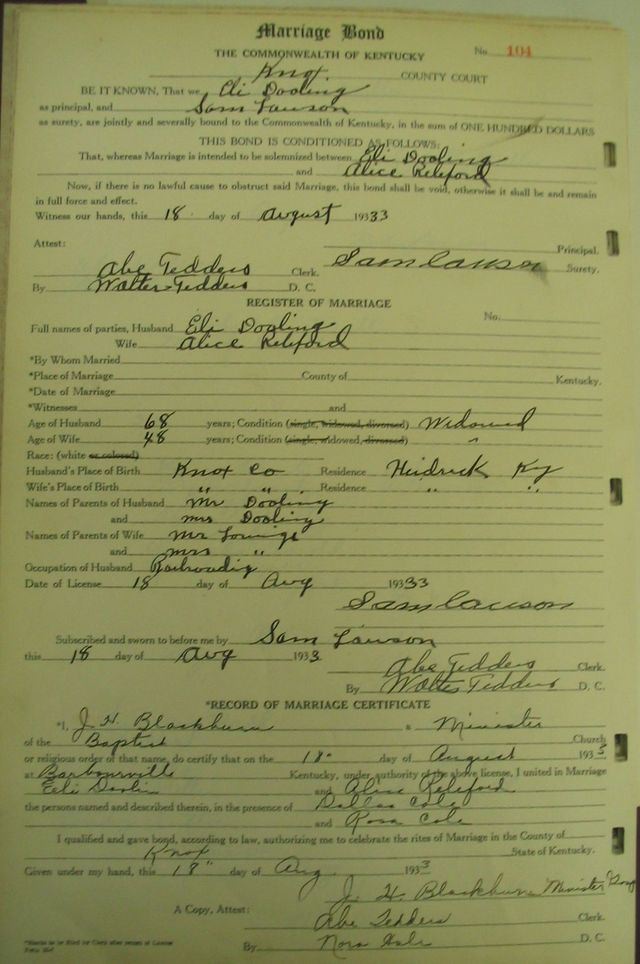 Marriage Bond
THE COMMONWEALTH OF KENTUCKY No. 104
Knox COUNTY COURT
BE IT KNOWN, That we Eli Dooling
as principal, and Sam Lawson
as surety, are jointly and severally bound to the Commonwealth of Kentucky, in the sum of ONE HUNDRED DOLLARS
THIS BOND IS CONDITIONED AS FOLLOWS:
That, whereas Marriage is intended to be solemnized between Eli Dooling
and Alice Releford
Now, if there is no lawful cause to obstruct said Marriage, this bond shall be void, otherwise it shall be and remain
in full force and effect.
Witness our hands, this 18 day of August 1933
Principal.
Attest:
Abe Tedders Clerk. Sam Lawson Surety.
By Walter Tedders D. C.
REGISTER OF MARRIAGE
No.
Full names of parties, Husband Eli Dooling
Wife Alice Releford
*By Whom Married
*Place of Marriage County of Kentucky.
*Date of Marriage
*Witnesses and
Age of Husband 68 years; Condition (single, widowed, divorced) Widowed
Age of Wife 48 years; Condition (single, widowed, divorced) "
Race: (white or colored)
Husband's Place of Birth Knox Co Residence Heidrick Ky
Wife's Place of Birth " " Residence " "
Names of Parents of Husband Mr Dooling
and Mrs Dooling
Names of Parents of Wife Mr
and Mrs "
Occupation of Husband
Date of License 18 day of Aug 193 33
Sam Lawson
Subscribed and sworn to before me by Sam Lawson
this 18 day of Aug 1933
Abe Tedders Clerk.
By Walter Tedders D. C.
*RECORD OF MARRIAGE CERTIFICATE
*I, J. H. Blackburn a Minister
of the Baptist Church
or religious order of that name, do certify that on the 18" day of August 1933
at Barbourville Kentucky, under authority of the above license, I united in Marriage
Eeli Doolin and Alice Releford
the persons named and described therein, in the presence of Dallas Cole
and Rosa Cole
I qualified and gave bond, according to law, authorizing me to celebrate the rites of Marriage in the County of
Knox State of Kentucky.
Given under my hand, this 18" day of Aug 1933
J. H. Blackburn Minister
A Copy, Attest: Abe Tedders Clerk.
By Nora D. C.